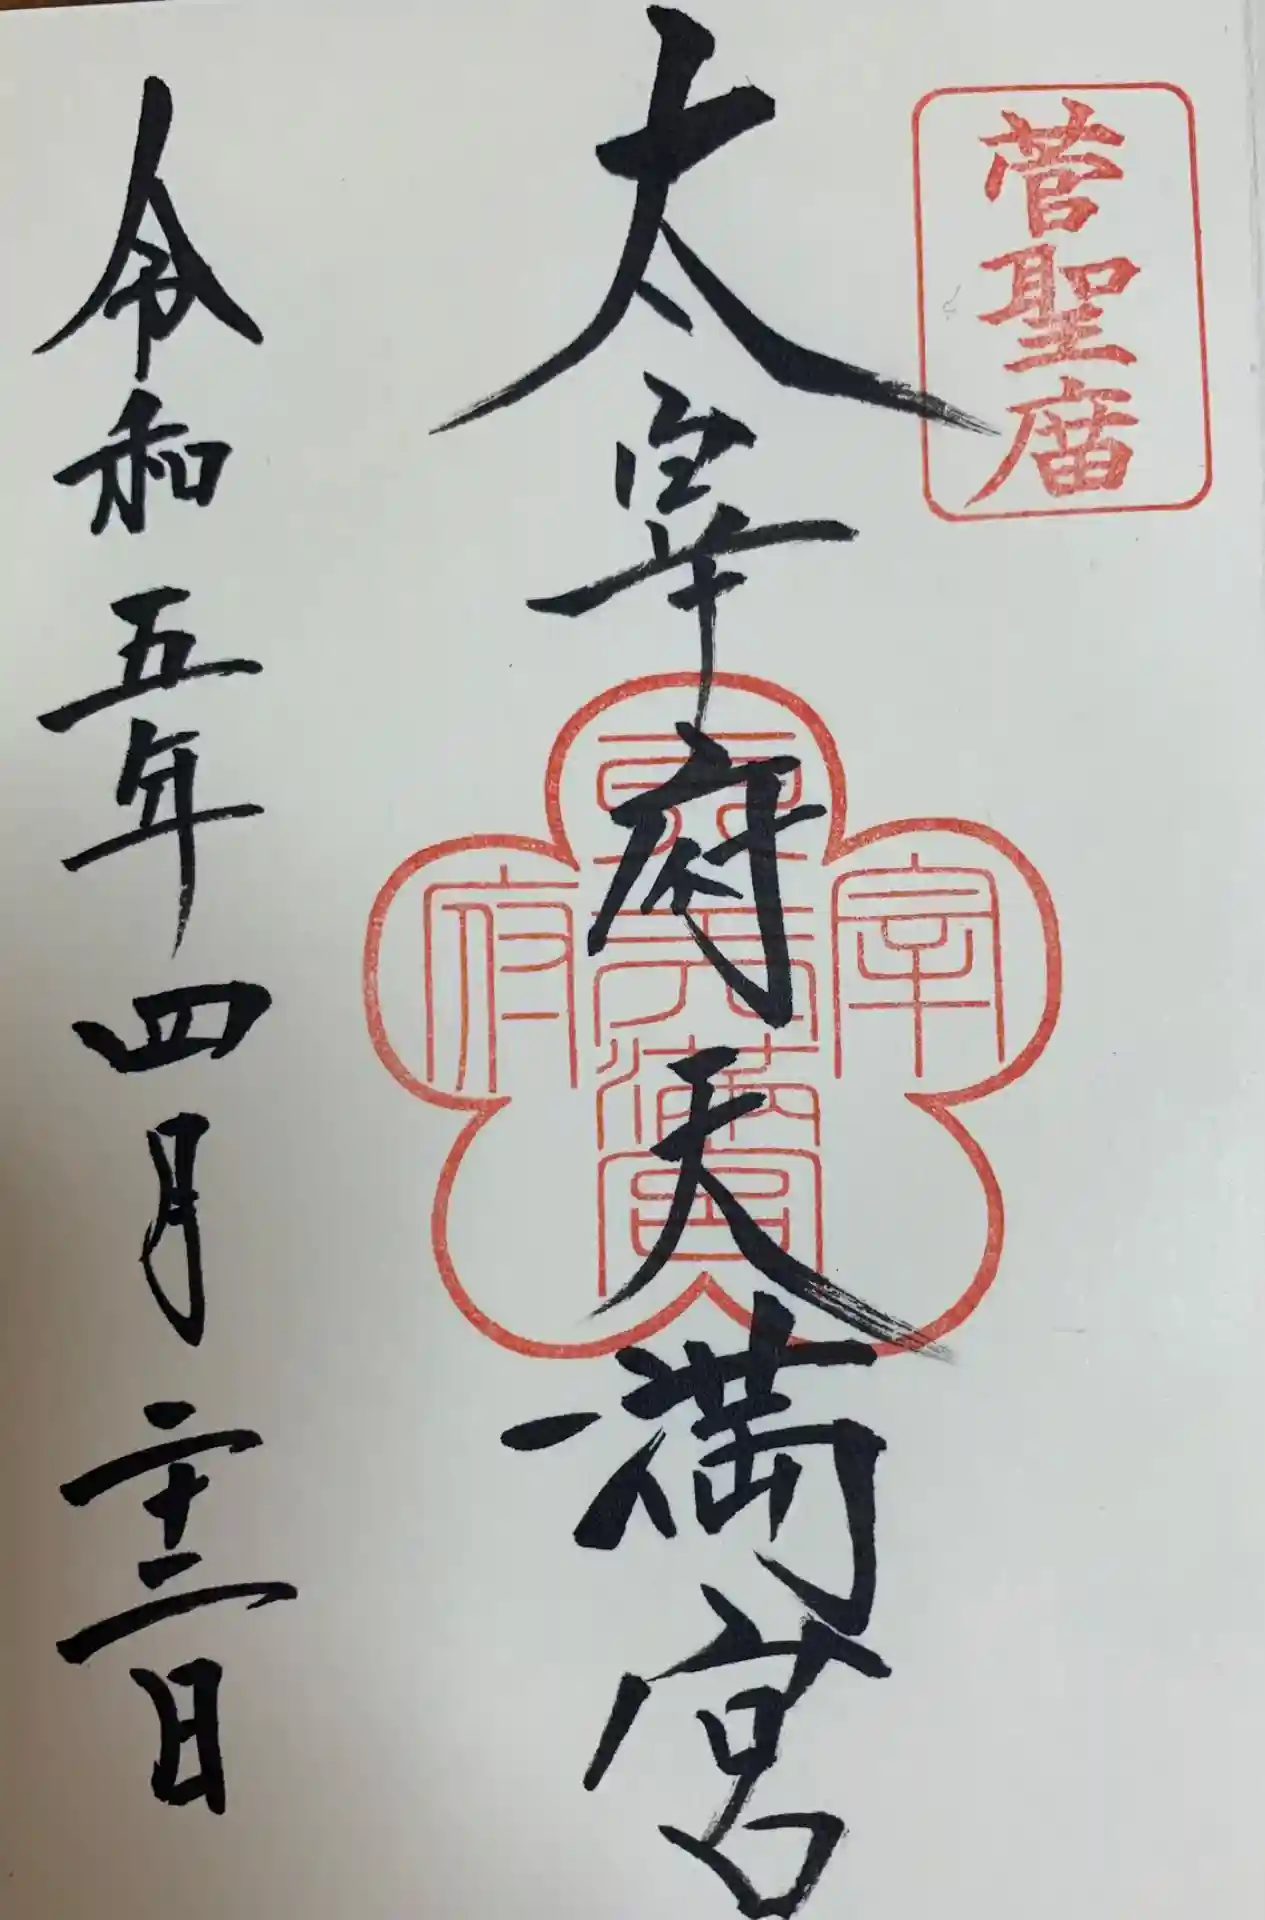 菅聖庿
太宰府天満宮
宰
府
天満宮
令和五年四月二十二日